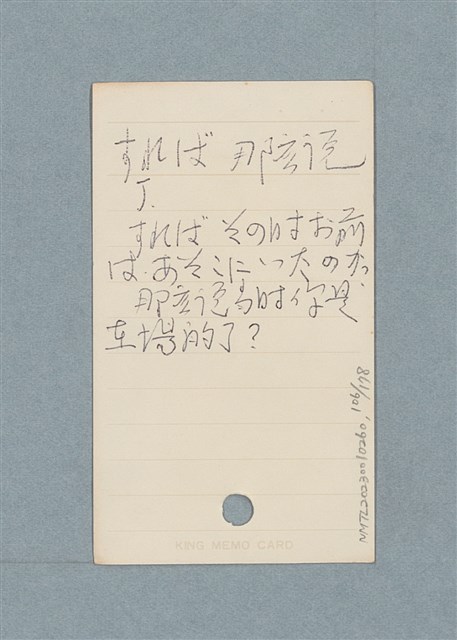 すれば 那麼说
J.
すれば その时お前
は、あそこにいたのか
那麼说当时你是
在場的了?
KING MEMO CARD
NMTL20230010260, 106/178